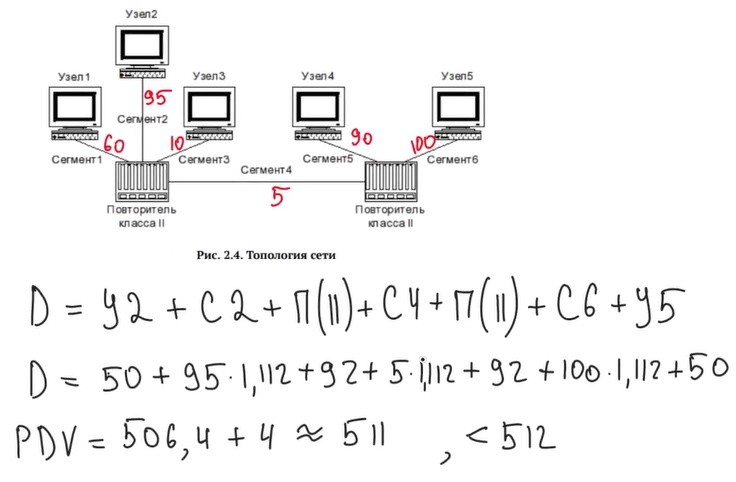 Узел2
Узел1
Узел3
Узел4
Узел5
95
Сегмент2
60
10
90
100
Сегмент1
Сегмент3
Сегмент4
Сегмент5
Сегмент6
5
Повторитель
класса II
Повторитель
класса II
Рис. 2.4. Топология сети
D = У2 + С2 + П(II) + С4 + П(II) + С6 + У5
D = 50 + 95·1,112 + 92 + 5·1,112 + 92 + 100·1,112 + 50
PDV = 506,4 + 4 ≈ 511 , < 512